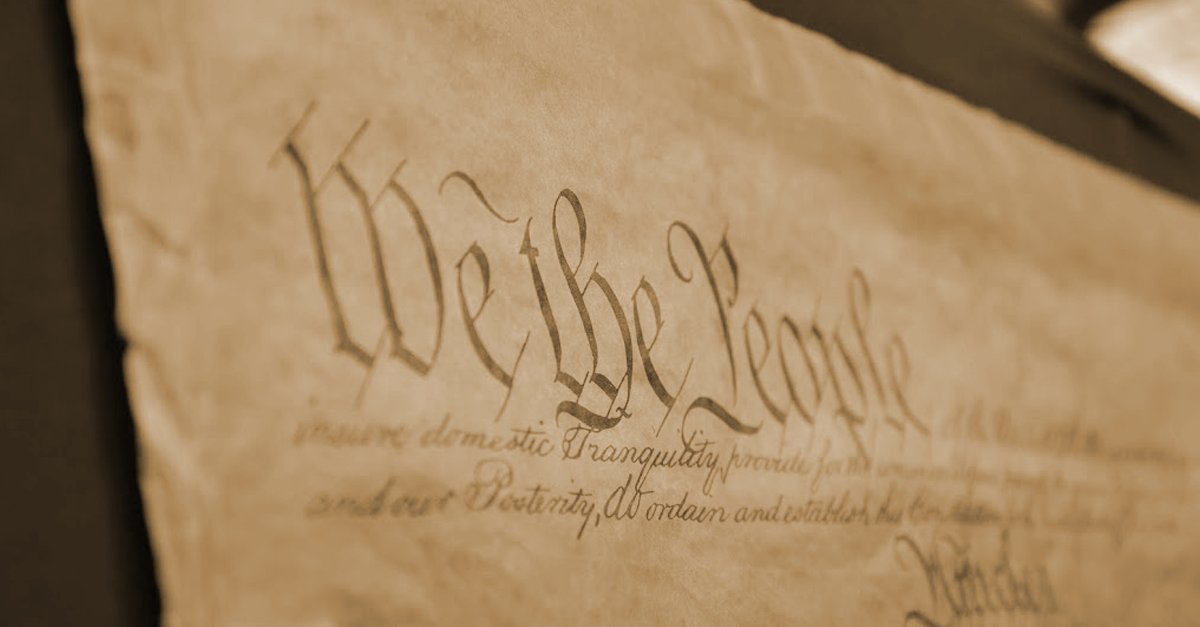 We the People
insure domestic Tranquility, provide for the common
and our Posterity, do ordain and establish this Constitution
Article